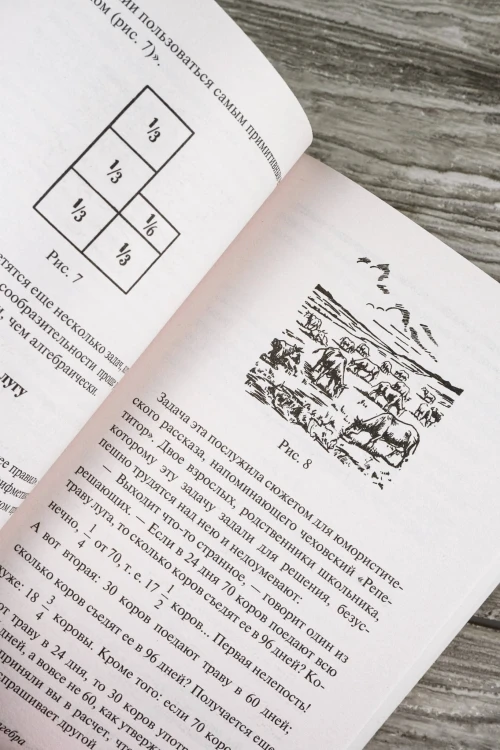 ии пользоваться самым примитивным
ом (рис. 7)».
1/3
1/3
1/3
1/6
1/3
Рис. 7
етятся еще несколько задач,
сообразительности проще
и, чем алгебраически.
лугу
Рис. 8
Задача эта послужила сюжетом для юмористиче-
ского рассказа, напоминающего чеховский «Репе-
титор». Двое взрослых, родственники школьника,
которому эту задачу задали для решения, безус-
пешно трудятся над нею и недоумевают:
— Выходит что-то странное, — говорит один из
решающих. — Если в 24 дня 70 коров поедают всю
траву луга, то сколько коров съедят ее в 96 дней? Ко-
нечно, 1/4 от 70, т. е. 17 1/2 коров... Первая нелепость!
А вот вторая: 30 коров поедают траву в 60 дней;
сколько коров съедят ее в 96 дней? Получается еще
хуже: 18 3/4 коровы. Кроме того: если 70 коров
ют траву в 24 дня, то 30 коров употр
дней, а вовсе не 60, как утверж
приняли вы в расчет, что
спрашивает другой
гебра